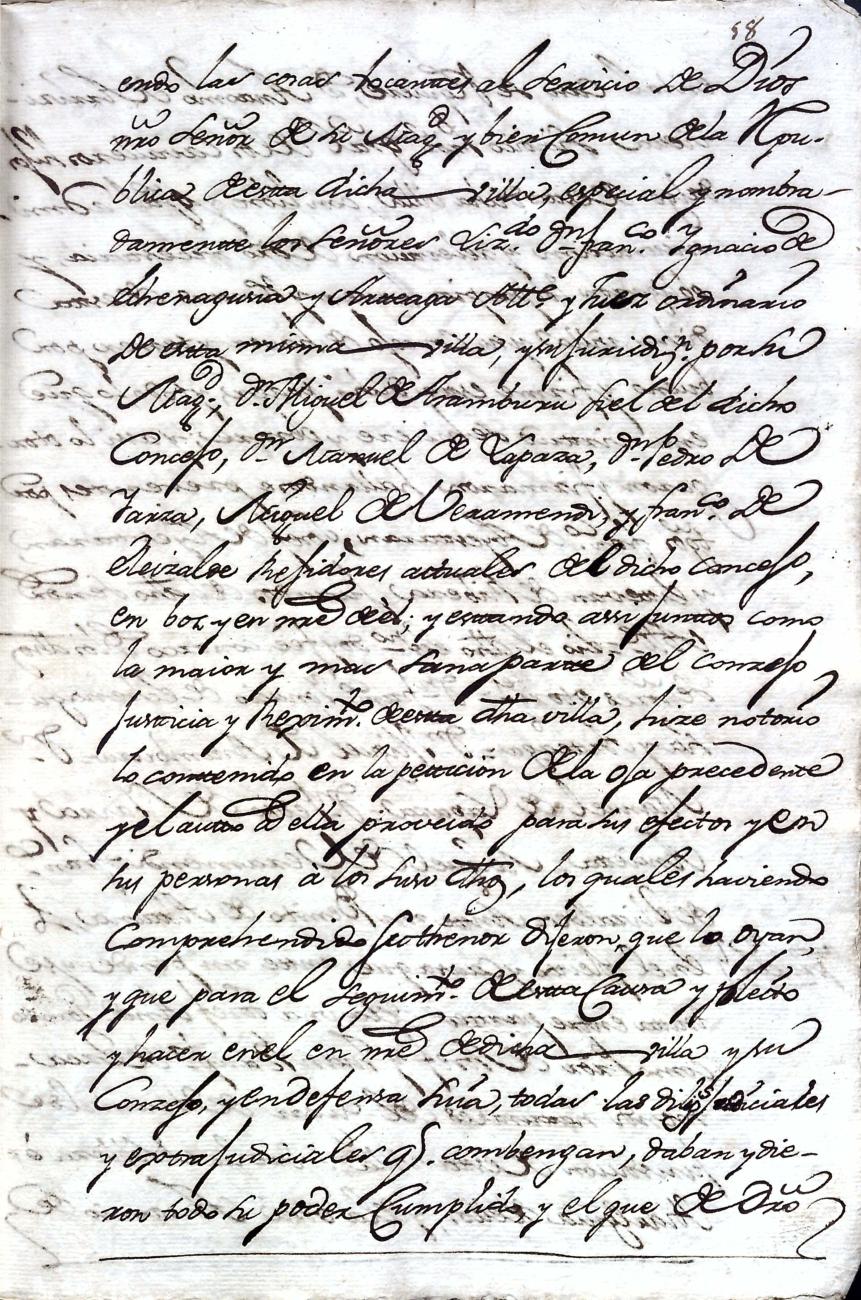 58
endo las cosas tocantes al servicio de Dios
nrõ Señor de su Magd y bien Comun dela Repu-
blica de esta dicha villa, especial y nombra-
damente los Señores Lizdo. dn. franco. Ygnacio de
Echenagusia y Arteaga Alle. y Juez ordinario
de esta misma villa, y su Juridizn. por su
Magd., Dn. Miguel de Aramburu fiel del dicho
Concejo, dn. Manuel de Lapaza, dn. Pedro De
Yarza, Miguel de Veramendi, y franco. De
Eleizalde Rejidores actuales del dicho Concejo,
en boz y en nrẽ de el; y estando assi juntos como
la maior y mas sana parte del conzejo
Justicia y Reximto. de esta dha villa, hize notorio
lo contenido en la peticion de la oja precedente
y el auto a ella proveido para sus efectos y en
sus personas à los suso dhos, los quales haviendo
Comprehendido su thenor dijeron, que lo oyan,
y que para el seguimto. de esta Causa y pleito
y hacer en el en nrẽ de dicha villa y su
Conzejo, y en defensa suia, todas las diligs. judiciales
y extrajudiciales q. combengan, daban y die-
ron todo su poder Cumplido, y el que de drõ